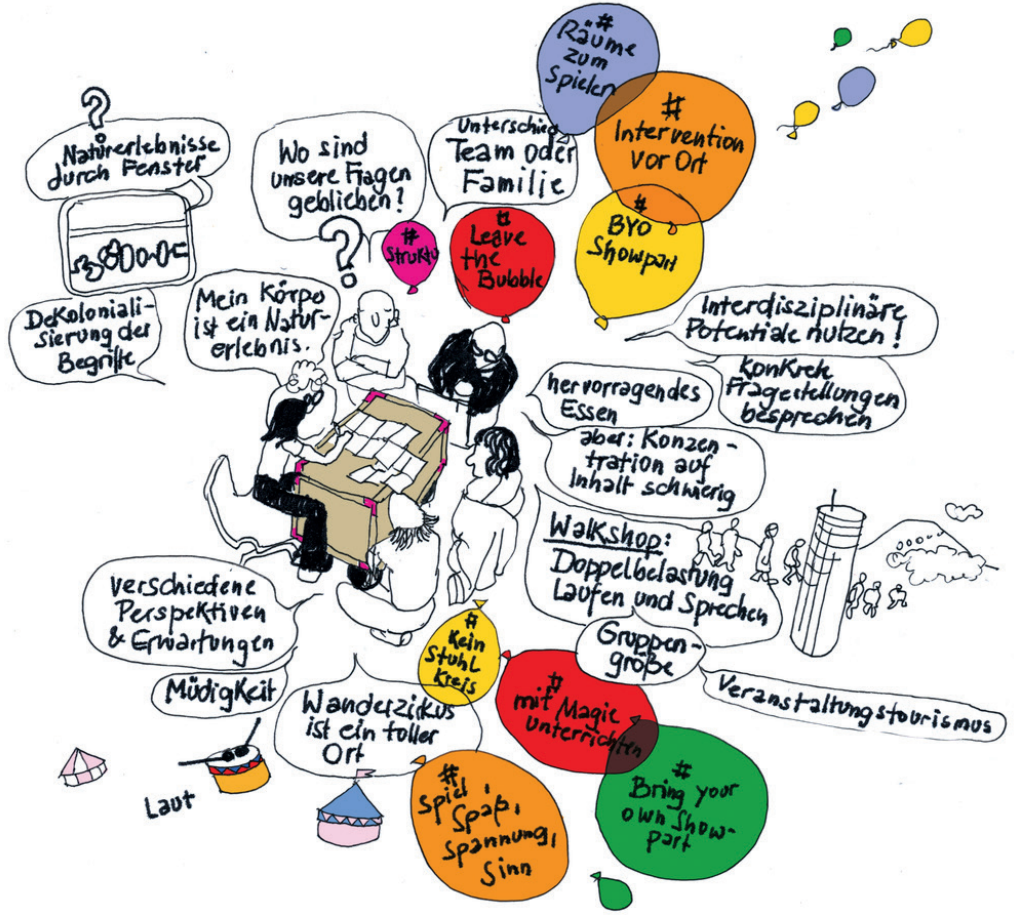 #
Räume
zum
Spielen
#
Intervention
vor Ort
?
Naturerlebnisse
durch Fenster
Wo sind
unsere Fragen
geblieben?
?
Unterschied
Team oder
Familie
#
Struktu
#
Leave
the
Bubble
#
BYO
Showpart
Dekoloniali-
sierung der
Begriffe
Mein Körpo
ist ein Natur-
erlebnis.
Interdisziplinäre
Potentiale nutzen!
Konkrete
Fragestellungen
besprechen
hervorragendes
Essen
aber: Konzen-
tration auf
Inhalt schwierig
Walkshop:
Doppelbelastung
Laufen und Sprechen
Gruppen-
größe
Veranstaltungstourismus
verschiedene
Perspektiven
& Erwartungen
Müdigkeit
Wanderzirkus
ist ein toller
Ort
Laut
#
Kein
Stuhl
Kreis
#
mit Magie
unterrichten
#
Spiel,
Spaß,
Spannung,
Sinn
#
Bring your
own Show-
part